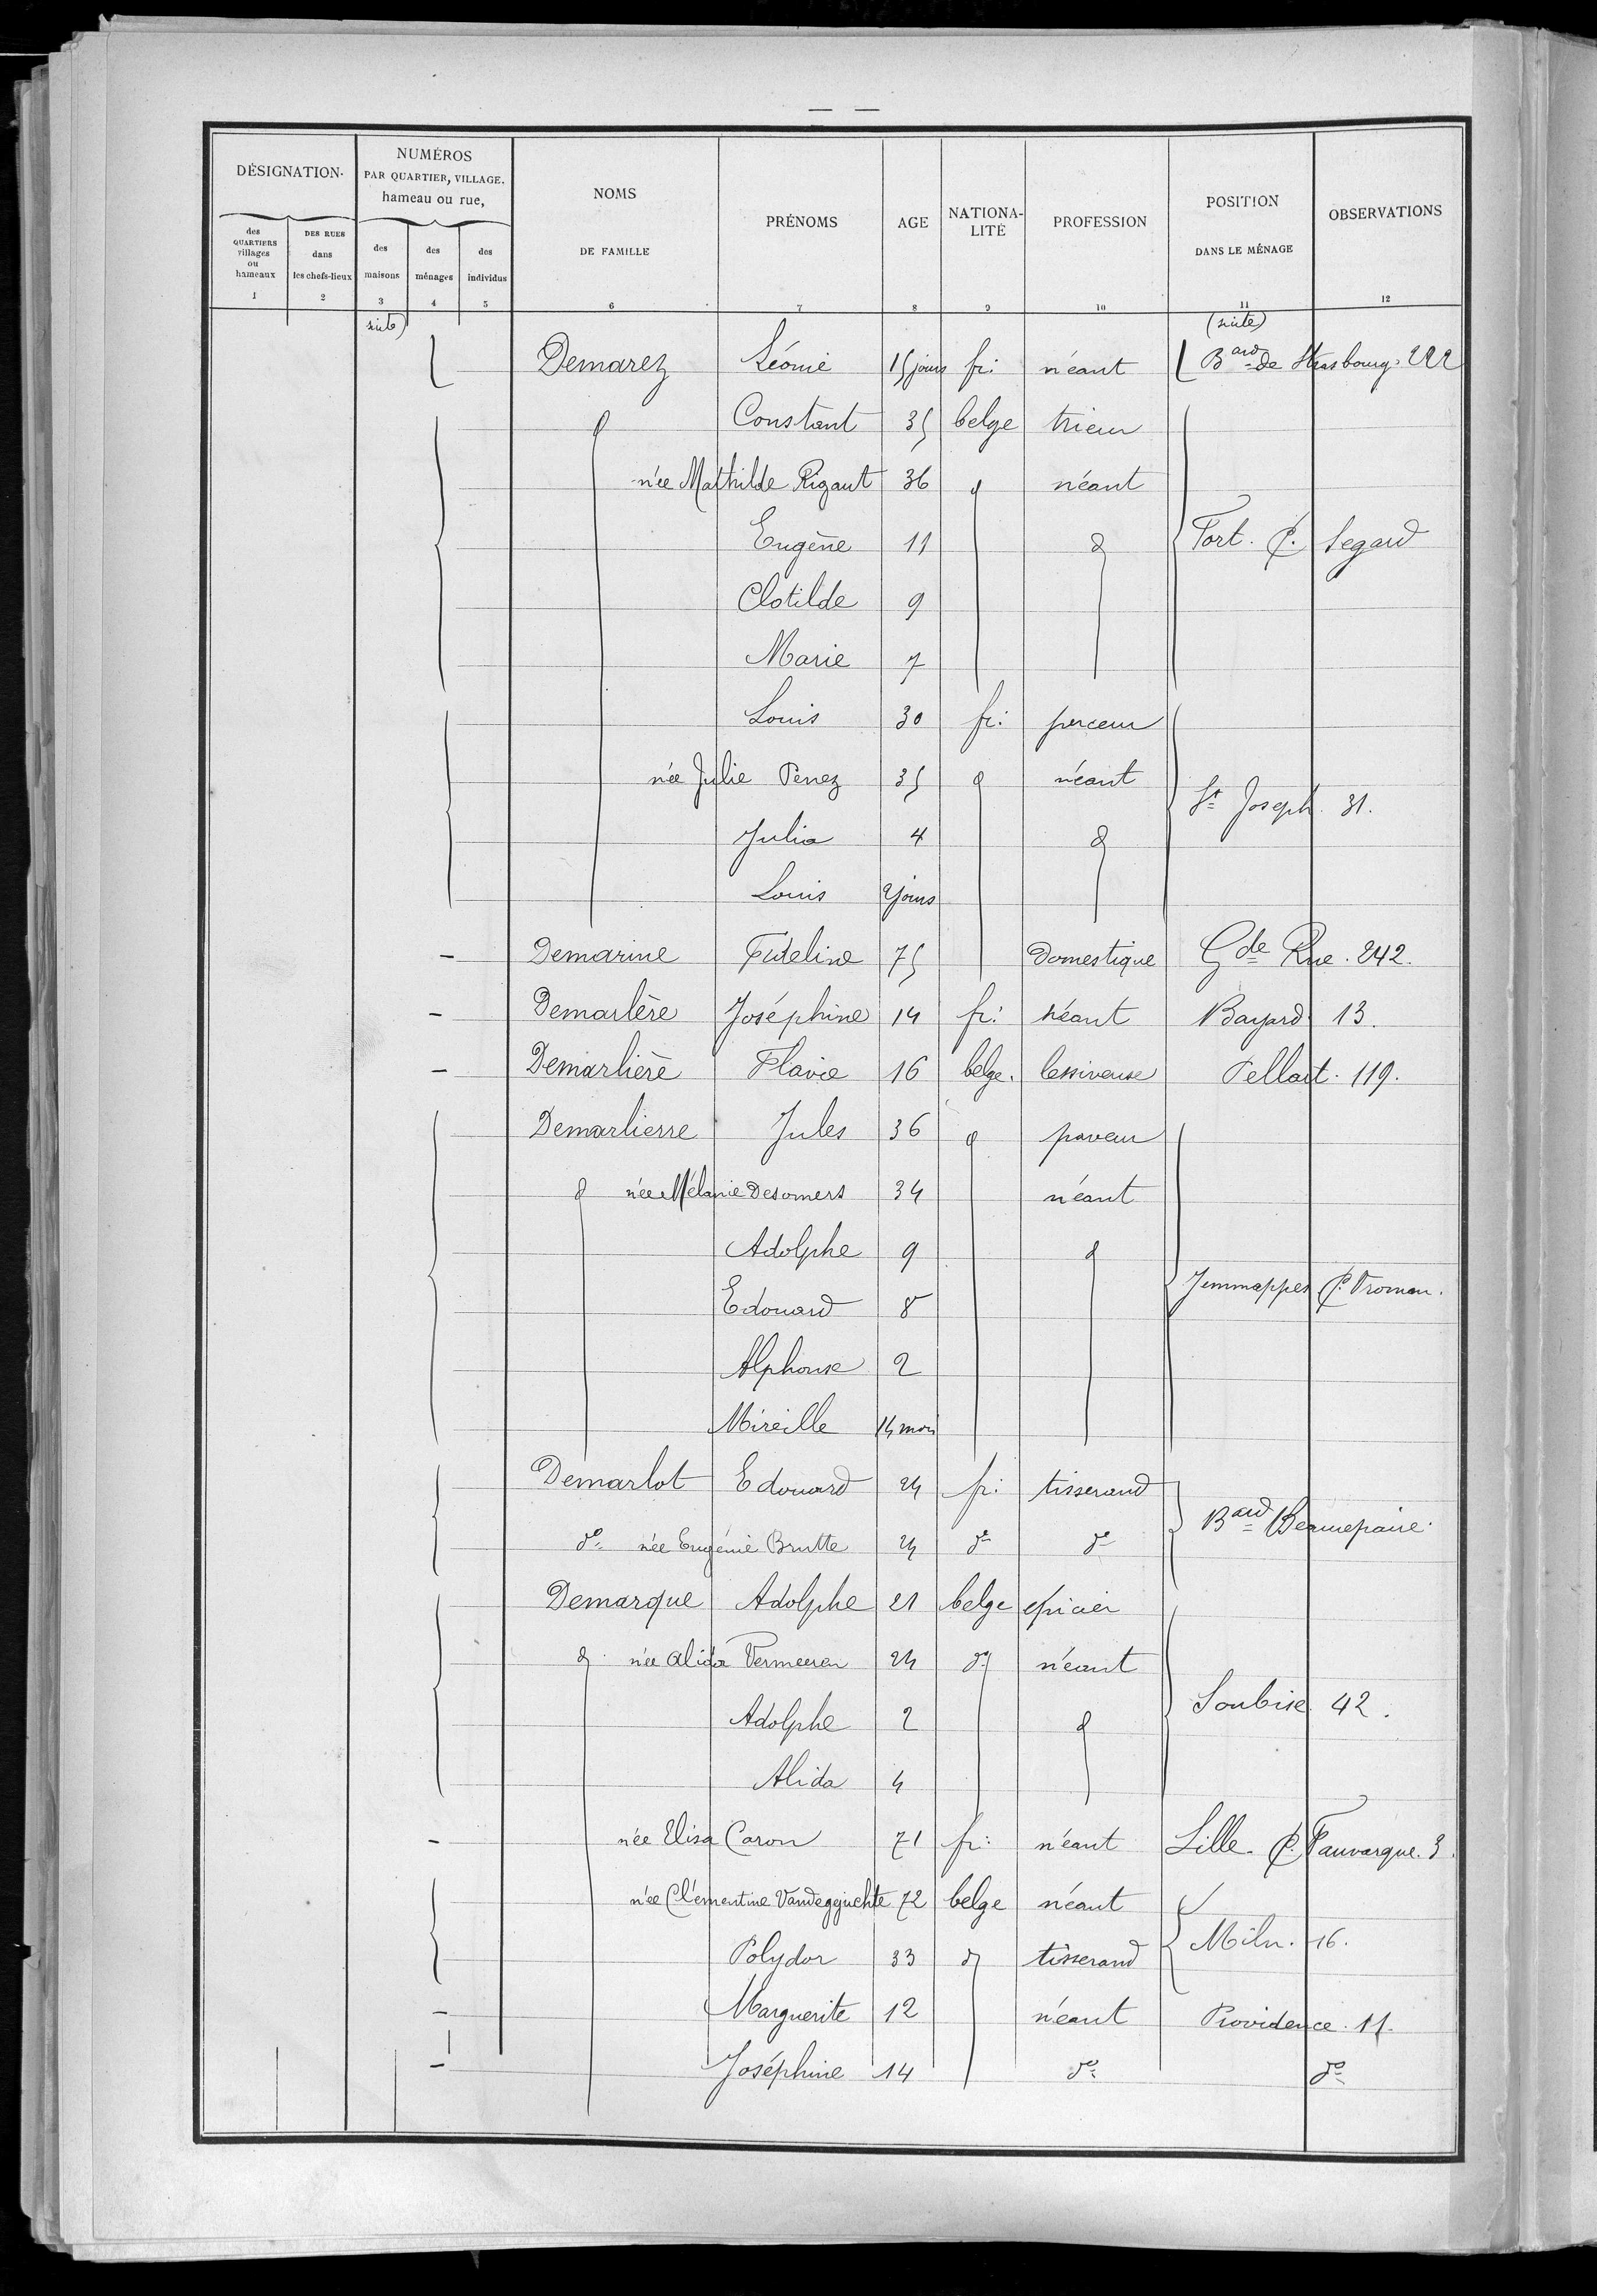 — —
DÉSIGNATION. NUMÉROS PAR QUARTIER, VILLAGE. hameau ou rue, NOMS DE FAMILLE PRÉNOMS AGE NATIONALITÉ PROFESSION POSITION DANS LE MÉNAGE OBSERVATIONS
des QUARTIERS villages ou hameaux DES RUES dans les chefs-lieux des maisons des ménages des individus
1 2 3 4 5 6 7 8 9 10 11 12
suite) (suite)
Demarez Léonie 15 jours fr: néant Bard de Strasbourg. 222
d Constant 35 belge trieur
née Mathilde Rigaut 36 d néant
Eugène 11 d Fort. C. Segard
Clotilde 9
Marie 7
Louis 30 fr: perceur
née Julie Penez 35 d néant
St Joseph. 31.
Julia 4 d
Louis 2 jours
— Demarine Fideline 75 Domestique Gde Rue. 242.
— Demarlère Joséphine 14 fr: néant Bayard 13.
— Demarlière Flavie 16 belge. lessiveuse Pellart. 119.
Demarlierre Jules 36 d paveur
d née Mélanie Desomers 34 néant
Adolphe 9 d
Jemmappes C. Vroman.
Edouard 8
Alphonse 2
Mireille 14 mois
Demarlot Edouard 24 fr: tisserand
Bard Beaurepaire.
do née Eugénie Brutte 24 do do
Demarque Adolphe 21 belge epicier
d née Alida Vermeeren 24 do néant
Soubise 42.
Adolphe 2 d
Alida 4
— née Elisa Caron 71 fr: néant Lille. C. Fauvarque. 3.
née Clémentine Vandegejuchte 72 belge néant
Miln. 16.
Polydor 33 d tisserand
— Marguerite 12 néant Providence. 11.
— Joséphine 14 do do